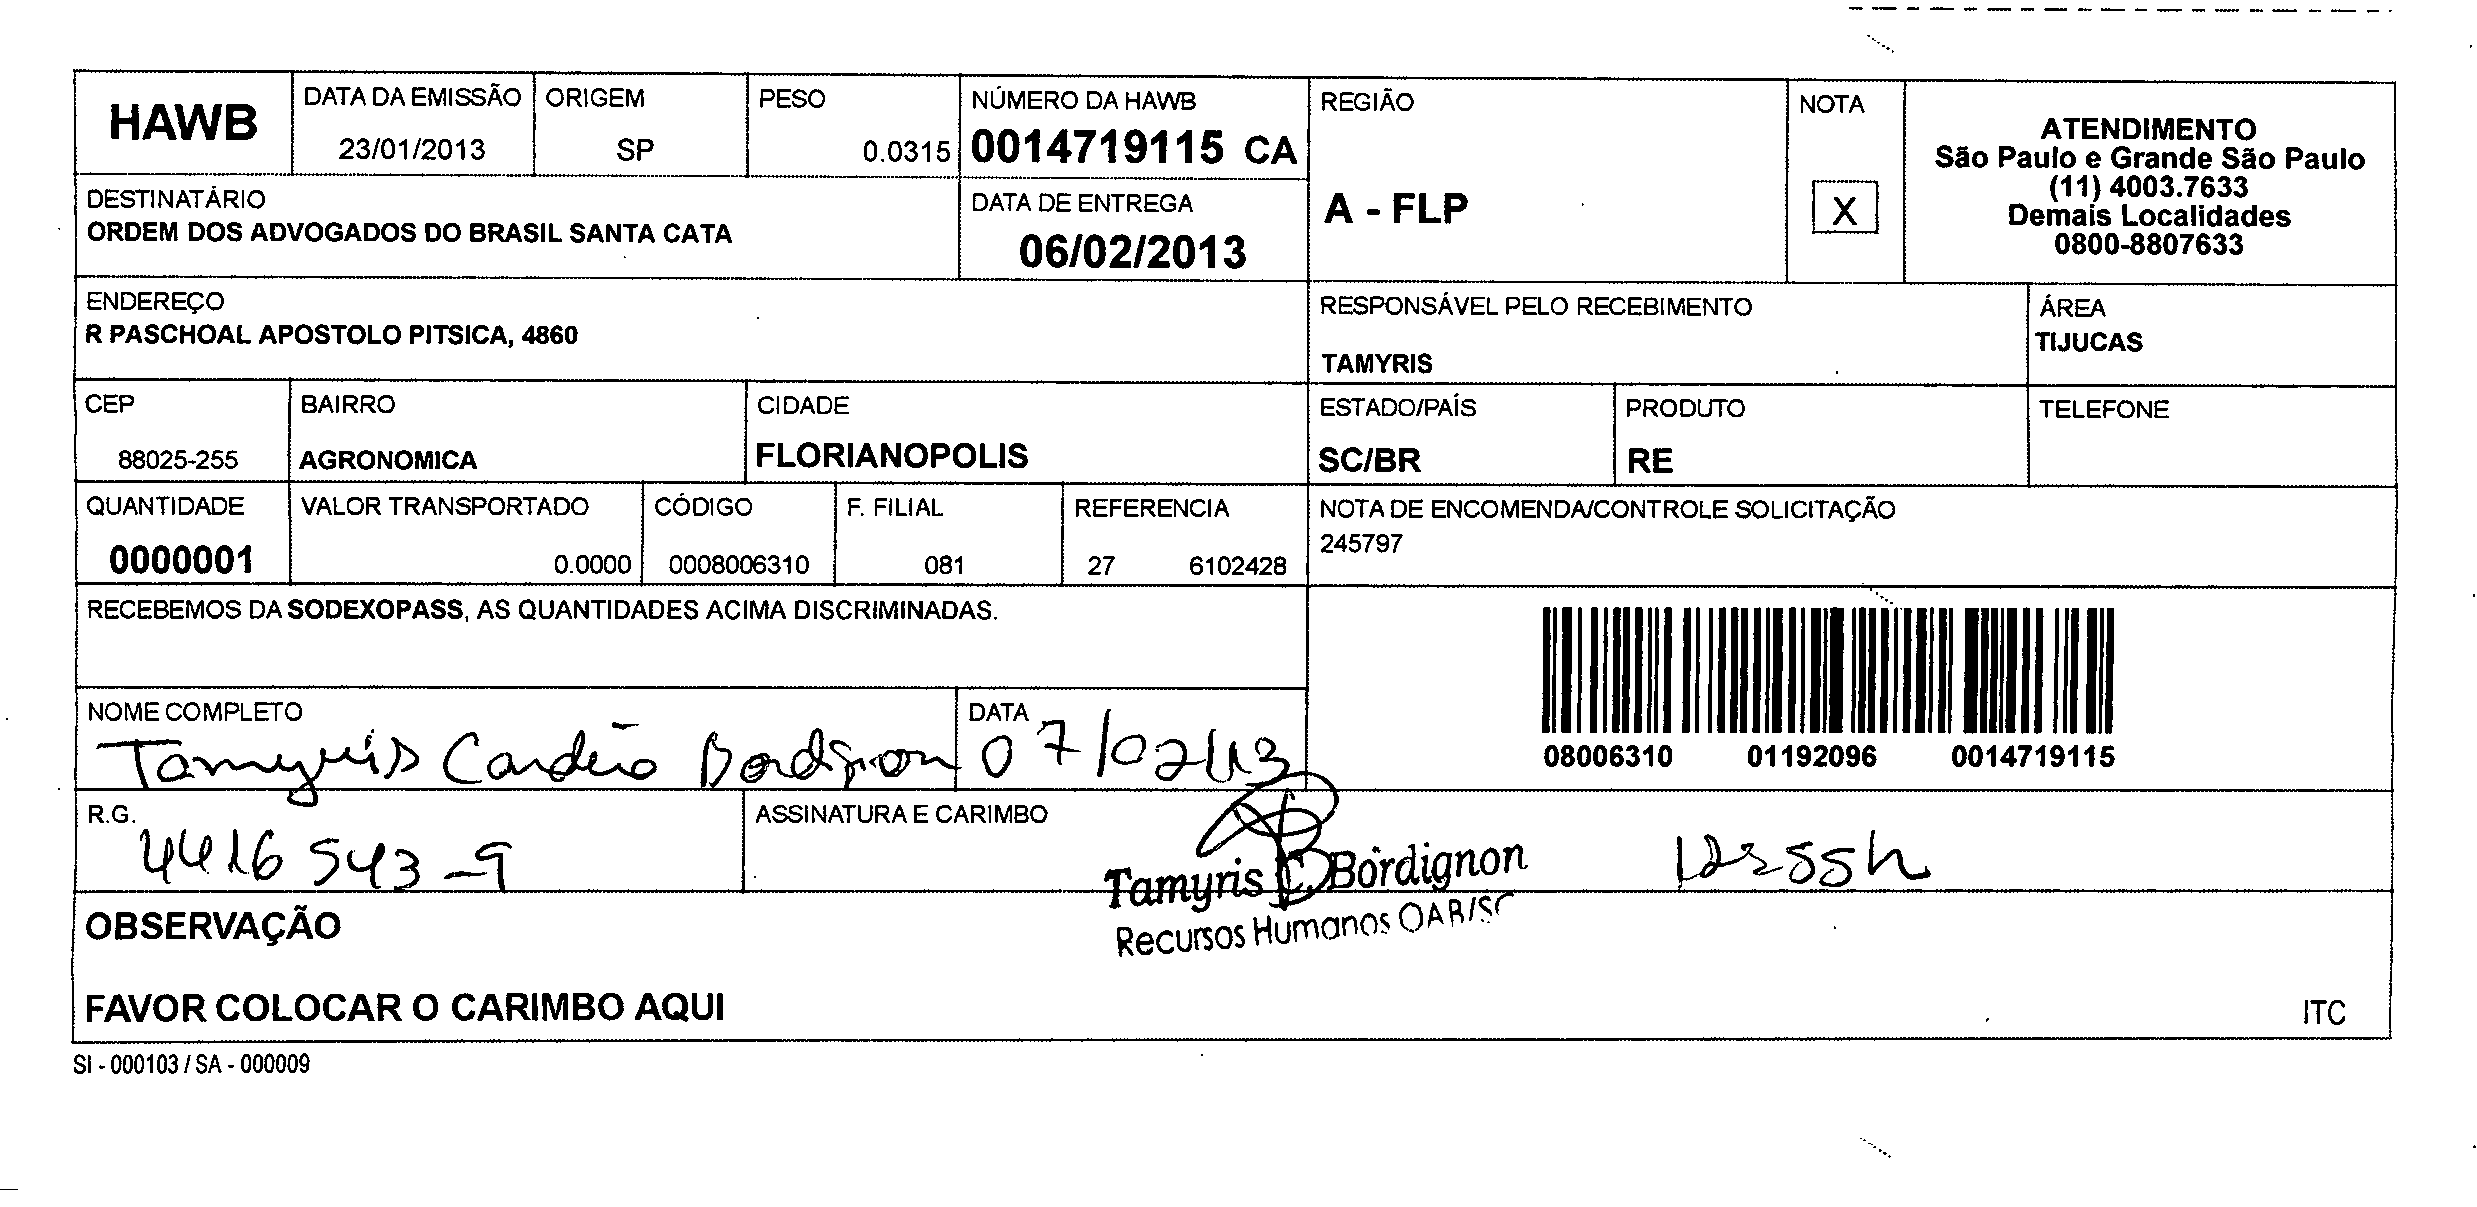 HAWB
DATA DA EMISSÃO
23/01/2013
ORIGEM
SP
PESO
0.0315
NÚMERO DA HAWB
0014719115 CA
REGIÃO
A - FLP
NOTA
X
ATENDIMENTO
São Paulo e Grande São Paulo
(11) 4003.7633
Demais Localidades
0800-8807633
DESTINATÁRIO
ORDEM DOS ADVOGADOS DO BRASIL SANTA CATA
DATA DE ENTREGA
06/02/2013
ENDEREÇO
R PASCHOAL APOSTOLO PITSICA, 4860
RESPONSÁVEL PELO RECEBIMENTO
TAMYRIS
ÁREA
TIJUCAS
CEP
88025-255
BAIRRO
AGRONOMICA
CIDADE
FLORIANOPOLIS
ESTADO/PAÍS
SC/BR
PRODUTO
RE
TELEFONE
QUANTIDADE
0000001
VALOR TRANSPORTADO
0.0000
CÓDIGO
0008006310
F. FILIAL
081
REFERENCIA
27 6102428
NOTA DE ENCOMENDA/CONTROLE SOLICITAÇÃO
245797
RECEBEMOS DA SODEXOPASS, AS QUANTIDADES ACIMA DISCRIMINADAS.
08006310 01192096 0014719115
NOME COMPLETO
Tamyris Bordignon
DATA
07/02/13
R.G.
4416543-9
ASSINATURA E CARIMBO
Tamyris C. Bordignon
Recursos Humanos OAB/SC
OBSERVAÇÃO
FAVOR COLOCAR O CARIMBO AQUI
ITC
SI - 000103 / SA - 000009